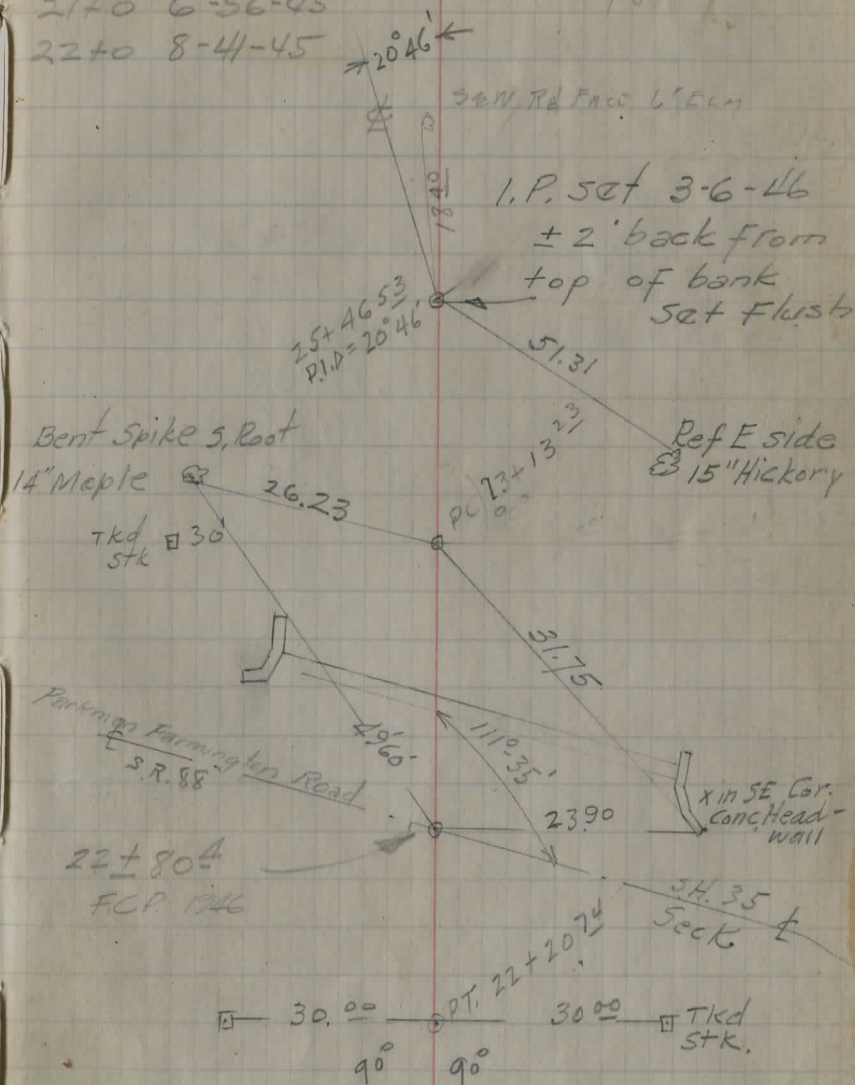 21+0 6-56-45
22+0 8-41-45
20°46'
S&N. Rd Face 6" Elm
18.40
I.P. set 3-6-46
± 2' back from
top of bank
Set Flush
25+46 53
P.I.Δ=20°46'
51.31
Ref E side
15" Hickory
Bent Spike S. Root
14" Maple
26.23
PC 23+13 23
Tkd
stk
30
31.75
49.60
111°-35'
Parkman Farmington Road
℄
S.R. 88
x in SE Cor.
conc. Head-
wall
23.90
22 ± 80 4
F.C.P. 1946
S.H. 35
Sec K
℄
P.T. 22+20 74
30.00
30 00
Tkd
stk.
90° 90°